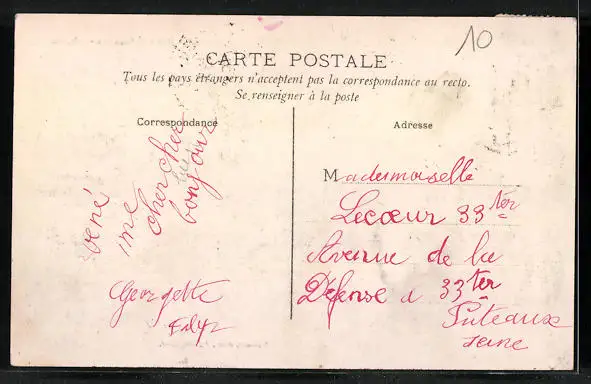 10
CARTE POSTALE
Tous les pays étrangers n'acceptent pas la correspondance au recto.
Se renseigner à la poste
Correspondance
vené
me
chercher
bonjour
Georgette
Adresse
Mademoiselle
Lecœur 33 ter
Avenue de la
Défense à 33 ter
Puteaux
Seine